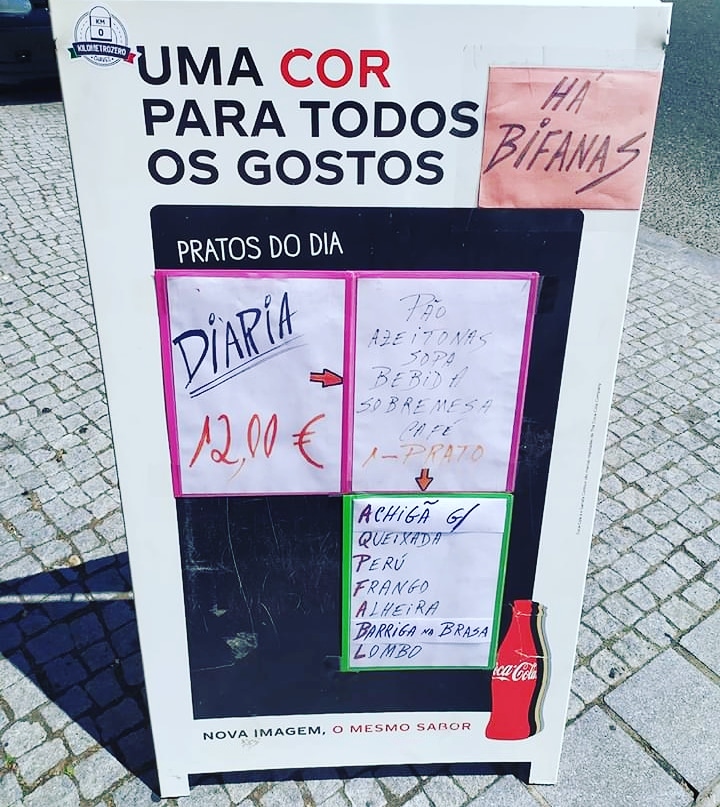 KM
0
KILOMETROZERO
CHAVES
UMA COR
PARA TODOS
OS GOSTOS
HÁ
BIFANAS
PRATOS DO DIA
DIÁRIA
12,00 €
PÃO
AZEITONAS
SOPA
BEBIDA
SOBREMESA
CAFÉ
1-PRATO
ACHIGÃ G/
QUEIXADA
PERÚ
FRANGO
ALHEIRA
BARRIGA NA BRASA
LOMBO
Coca-Cola
NOVA IMAGEM, O MESMO SABOR